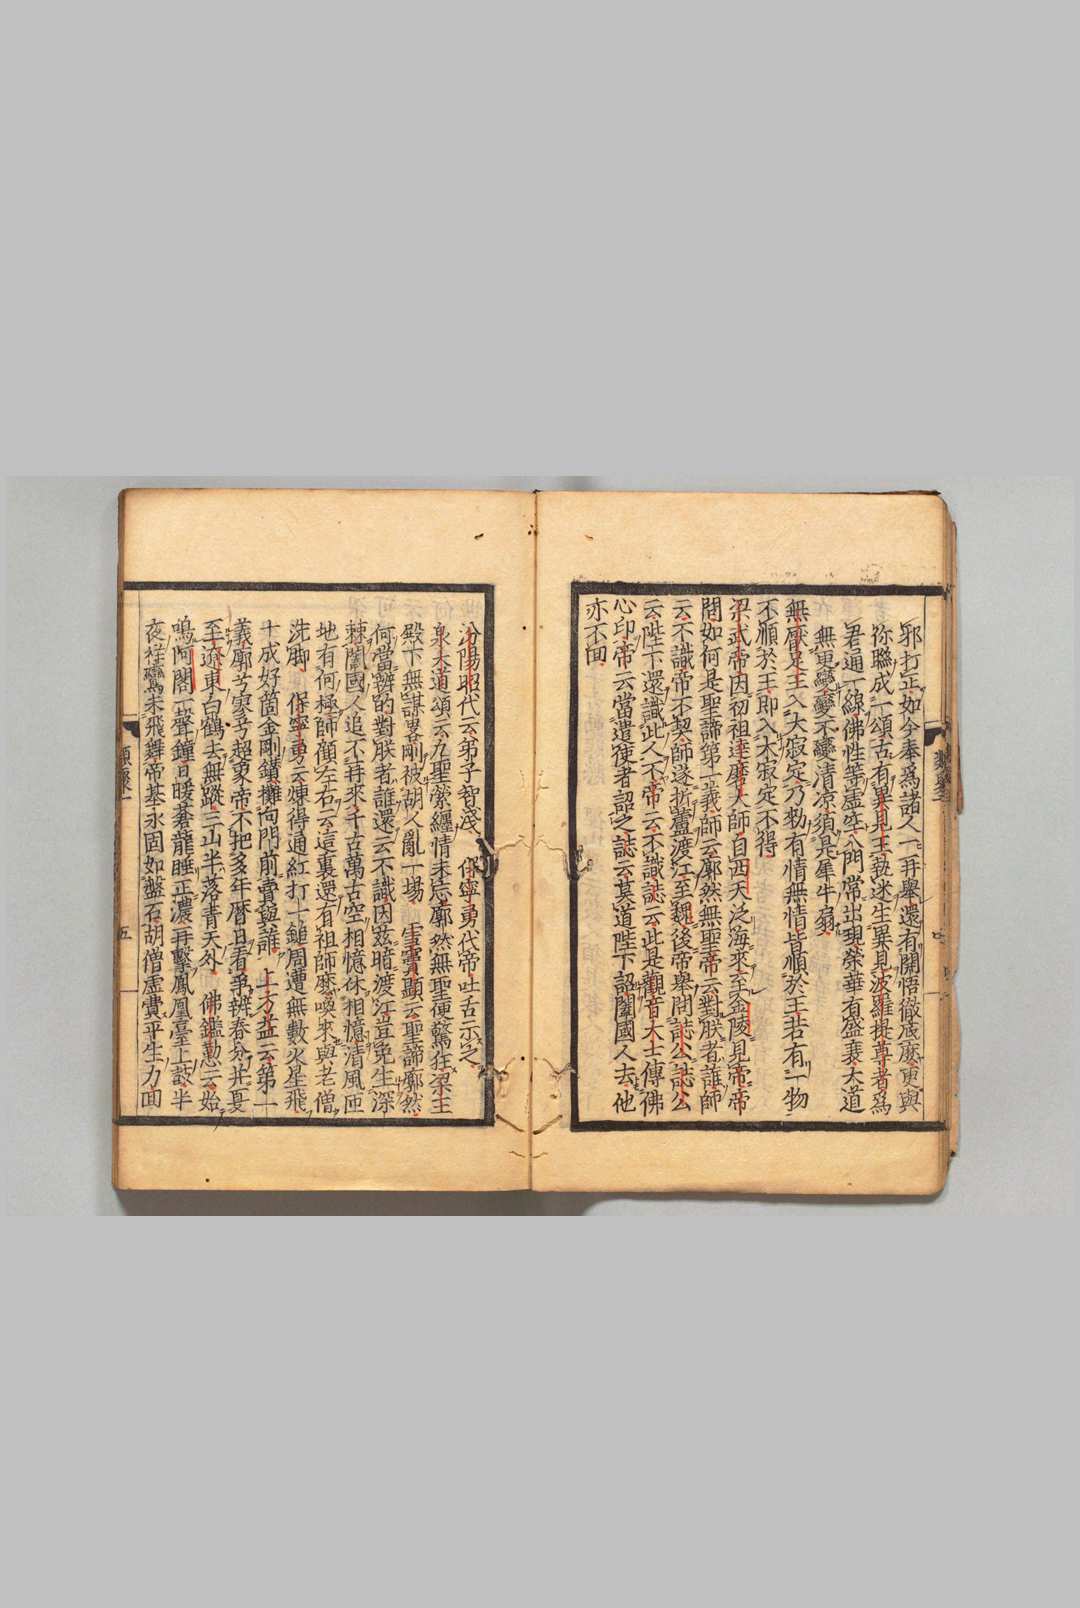 邪打正如今奉爲諸人一一再擧還有開悟徹底麼更與
你聯成一頌古有異見王執迷生異見波羅提尊者爲
君通一線佛性等虛空八門常出現榮華有盛衰大道
無更變變不變清凉須是犀牛扇
無厭足王入大寂定乃勑有情無情皆順於王若有一物
不順於王即入大寂定不得
梁武帝因初祖達磨大師自西天泛海來至金陵見帝帝
問如何是聖諦第一義師云廓然無聖帝云對朕者誰師
云不識帝不契師遂折蘆渡江至魏後帝擧問誌公誌公
云陛下還識此人不帝云不識誌云此是觀音大士傳佛
心印帝云當遣使者詔之誌云莫道陛下詔闔國人去他
亦不回
汾陽昭代云弟子智淺 保寧勇代帝吐舌示之
泉大道頌云九聖縈纏情未忘廓然無聖便驚狂梁王
殿下無謀畧剛被胡人亂一場 雪竇顯云聖諦廓然
何當辨的對朕者誰還云不識因茲暗渡江豈免生深
棘闔國人追不再來千古萬古空相憶休相憶清風匝
地有何極師顧左右云這裏還有祖師麼喚來與老僧
洗脚 保寧勇云煉得通紅打一鎚周遭無數火星飛
十成好箇金剛鑽攤向門前賣與誰 上方益云第一
義廓兮寥兮超東帝不把多年曆日看爭辨春分并夏
至遼東白鶴去無蹤三山半落青天外 佛鑑懃云始
鳴阿閣一聲鐘日暖蒼龍睡正濃再擊鳳凰臺上鼓半
夜祥鸞未飛舞帝基永固如盤石胡僧虛費平生力面
類聚一
五